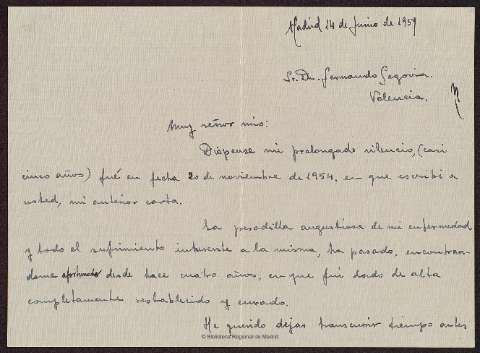 Madrid 24 de Junio de 1959
Sr. Dn. Fernando Segovia.
Valencia.
Muy señor mío:
Dispense mi prolongado silencio, (casi
cinco años) fué en fecha 20 de noviembre de 1954, en que escribí a
usted, mi anterior carta.
La pesadilla angustiosa de mi enfermedad
y todo el sufrimiento inherente a la misma, ha pasado, encontran-
dome afortunado desde hace cuatro años, en que fuí dado de alta
completamente restablecido y curado.
He querido dejar transcurrir tiempo antes
© Biblioteca Regional de Madrid